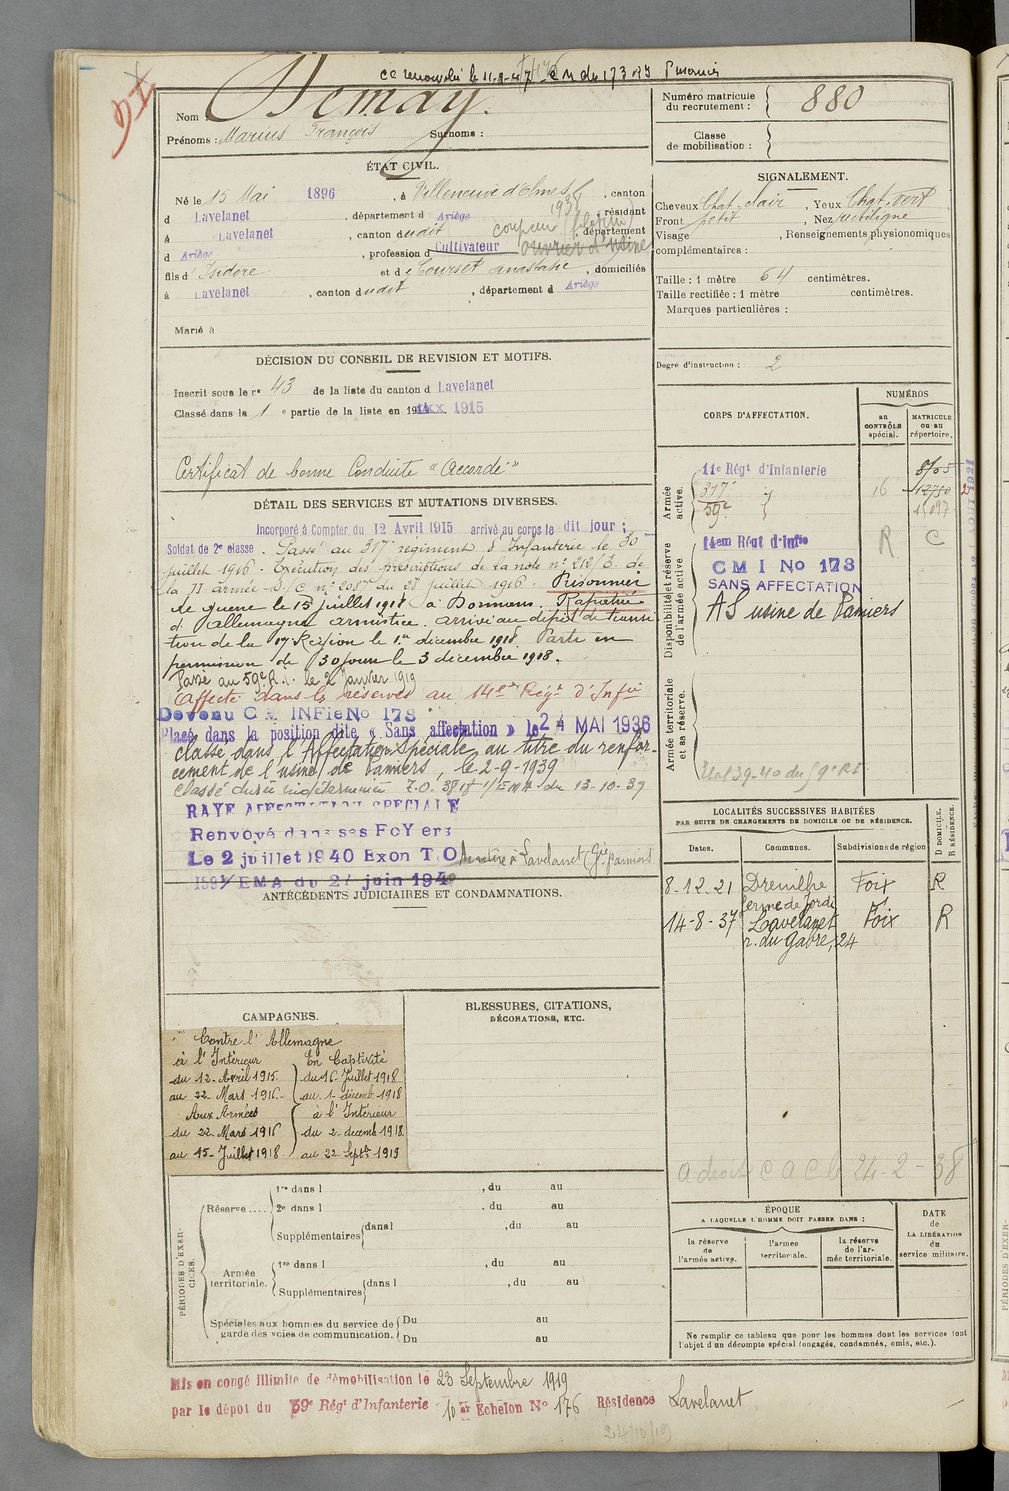 cc renouvelé le 11-9-47
Nom Demay.
Prénoms : Marius François Surnoms :
Numéro matricule du recrutement : 880
Classe de mobilisation :
ÉTAT CIVIL.
Né le 15 Mai 1896, à Villeneuve d'Olmes, canton
d Lavelanet, département d Ariège, résidant
à Lavelanet, canton dudit, département
d Ariège, profession d Cultivateur ouvrier d'usine
1938 coupeur
fils d' Isidore et de Courset anastasie, domiciliés
à Lavelanet, canton dudit, département d Ariège
Marié à
SIGNALEMENT.
Cheveux Chat. clair, Yeux Chat. vert
Front petit, Nez rectiligne
Visage , Renseignements physionomiques
complémentaires :
Taille : 1 mètre 64 centimètres.
Taille rectifiée : 1 mètre centimètres.
Marques particulières :
Degré d'instruction : 2
DÉCISION DU CONSEIL DE REVISION ET MOTIFS.
Inscrit sous le n° 43 de la liste du canton d Lavelanet
Classé dans la 1e partie de la liste en 1915
Certificat de bonne Conduite "Accordé"
DÉTAIL DES SERVICES ET MUTATIONS DIVERSES.
Incorporé à Compter du 12 Avril 1915 arrivé au corps le dit jour ;
Soldat de 2e classe. Passé au 317e régiment d'Infanterie le 30
juillet 1916. Exécution des prescriptions de la note n° 212/3. de
la II armée D/C n° 208 du 28 juillet 1916. Prisonnier
de guerre le 15 juillet 1918 à Dormans. Rapatrié
d'Allemagne armistice. arrivé au dépôt de transi
tion de la 17e Région le 1er décembre 1918. Parti en
permission de 30 jours le 3 décembre 1918.
Passé au 59e R.I. le 2 Janvier 1919
Affecté dans la réserve au 14eme Régt d'Infie
Devenu C.M. INFie No 173
Placé dans la position dite « Sans affectation » le 24 MAI 1936
classé dans l'Affectation Spéciale au titre du renfor-
cement de l'usine de Pamiers, le 2-9-1939
Classé durée indéterminée T.O. 3818 1/EMA du 13-10-39
RAYE AFFECTATION SPECIALE
Renvoyé dans ses FoYers
Le 2 juillet 1940 Exon T O
1591/EMA du 27 juin 1940
se retire à Lavelanet
CORPS D'AFFECTATION.
NUMÉROS
au CONTRÔLE spécial.
MATRICULE ou au répertoire.
Armée active.
11e Régt d'Infanterie 8105
317e 16 12750
59e
Disponibilité et réserve de l'armée active.
14em Régt d'Infie R C
C M I No 173
SANS AFFECTATION
AS usine de Pamiers
Armée territoriale et sa réserve.
LOCALITÉS SUCCESSIVES HABITÉES
PAR SUITE DE CHANGEMENTS DE DOMICILE OU DE RÉSIDENCE.
Dates. Communes. Subdivisions de région D DOMICILE. R RÉSIDENCE.
8-12-21 Dreuilhe Foix R
ferme de Jordi
14-8-37 Lavelanet Foix R
r. du Gabre, 24
ANTÉCÉDENTS JUDICIAIRES ET CONDAMNATIONS.
CAMPAGNES.
Contre l'Allemagne
à l'Intérieur
du 12 Avril 1915.
au 22 Mars 1916.
Aux Armées
du 22 Mars 1916
au 15 Juillet 1918.
En Captivité
du 16 Juillet 1918
au 1 décemb. 1918
à l'Intérieur
du 2 decemb 1918.
au 22 Septbre 1919
BLESSURES, CITATIONS,
DÉCORATIONS, ETC.
a droit C A C le 24-2-38
PÉRIODES D'EXERCICES.
Réserve....
1re dans l , du au
2e dans l , du au
Supplémentaires dans l , du au
Armée territoriale.
1re dans l , du au
Supplémentaires dans l , du au
Spéciales aux hommes du service de garde des voies de communication.
Du au
Du au
ÉPOQUE
A LAQUELLE L'HOMME DOIT PASSER DANS :
la réserve de l'armée active.
l'armée territoriale.
la réserve de l'armée territoriale.
DATE de LA LIBÉRATION du service militaire.
Ne remplir ce tableau que pour les hommes dont les services font
l'objet d'un décompte spécial (engagés, condamnés, omis, etc.).
Mis en congé illimité de démobilisation le 23 Septembre 1919
par le dépôt du 59e Régt d'Infanterie 10 er Échelon No 176 Résidence Lavelanet
24/10/19